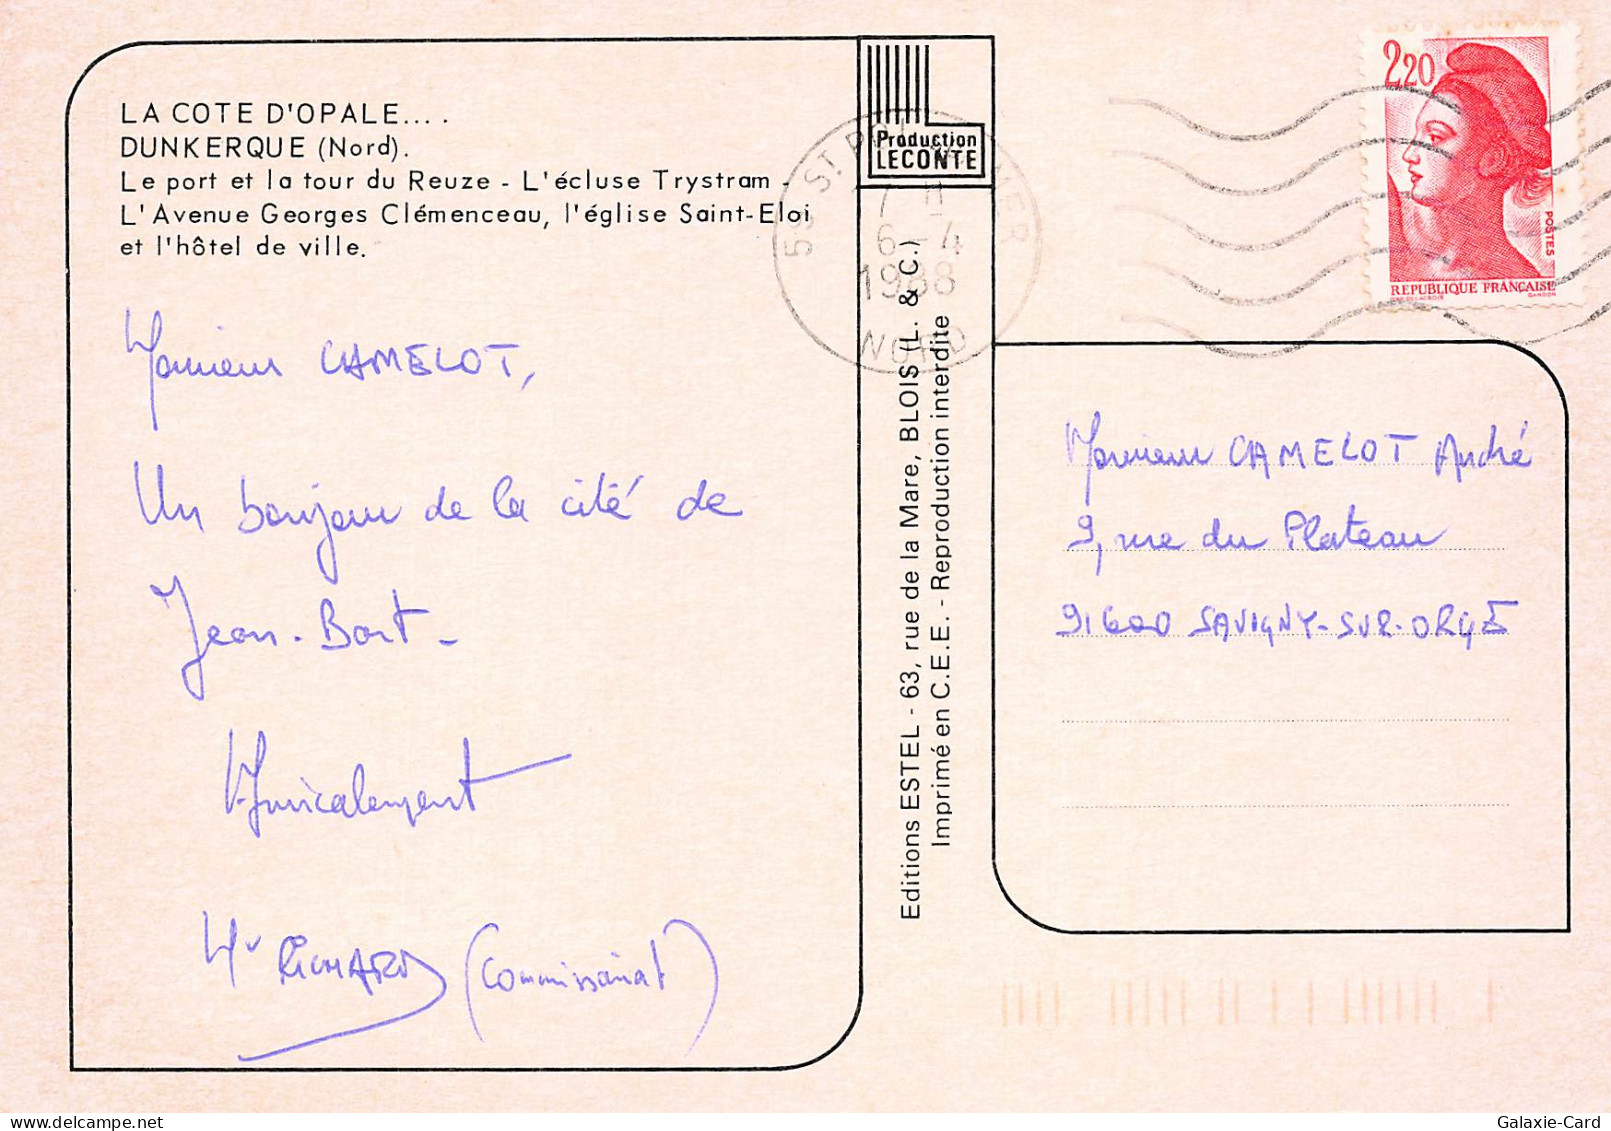 LA COTE D'OPALE... .
DUNKERQUE (Nord).
Le port et la tour du Reuze - L'écluse Trystram -
L'Avenue Georges Clémenceau, l'église Saint-Eloi
et l'hôtel de ville.
Monsieur CAMELOT,
Un bonjour de la cité de
Jean-Bart-
Amicalement
Mr RICHARD (Commissariat)
Production
LECONTE
Editions ESTEL - 63, rue de la Mare, BLOIS (L. & C.)
Imprimé en C.E.E. - Reproduction interdite
59 ST POL
6-4
1988
NORD
2,20
POSTES
REPUBLIQUE FRANÇAISE
GANDON
Monsieur CAMELOT André
9, rue du Plateau
91600 SAVIGNY-SUR-ORGE
Galaxie-Card